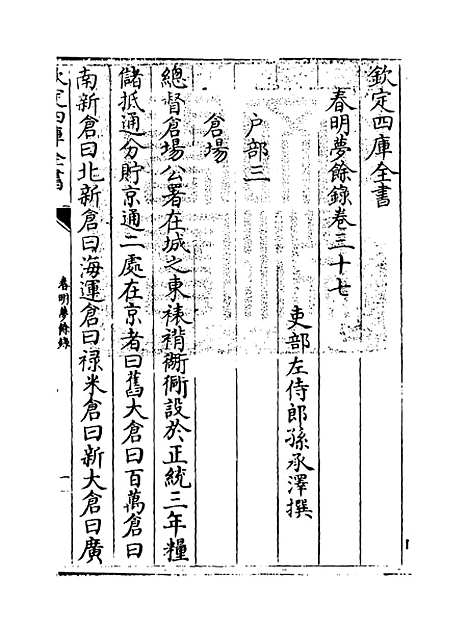 欽定四庫全書
春明夢餘錄卷三十七
吏部左侍郎孫承澤撰
户部三
倉場
總督倉場公署在城之東裱褙衚衕設於正統三年糧
儲抵通分貯京通二處在京者曰舊大倉曰百萬倉曰
南新倉曰北新倉曰海運倉曰祿米倉曰新大倉曰廣
欽定四庫全書
春明夢餘錄
一